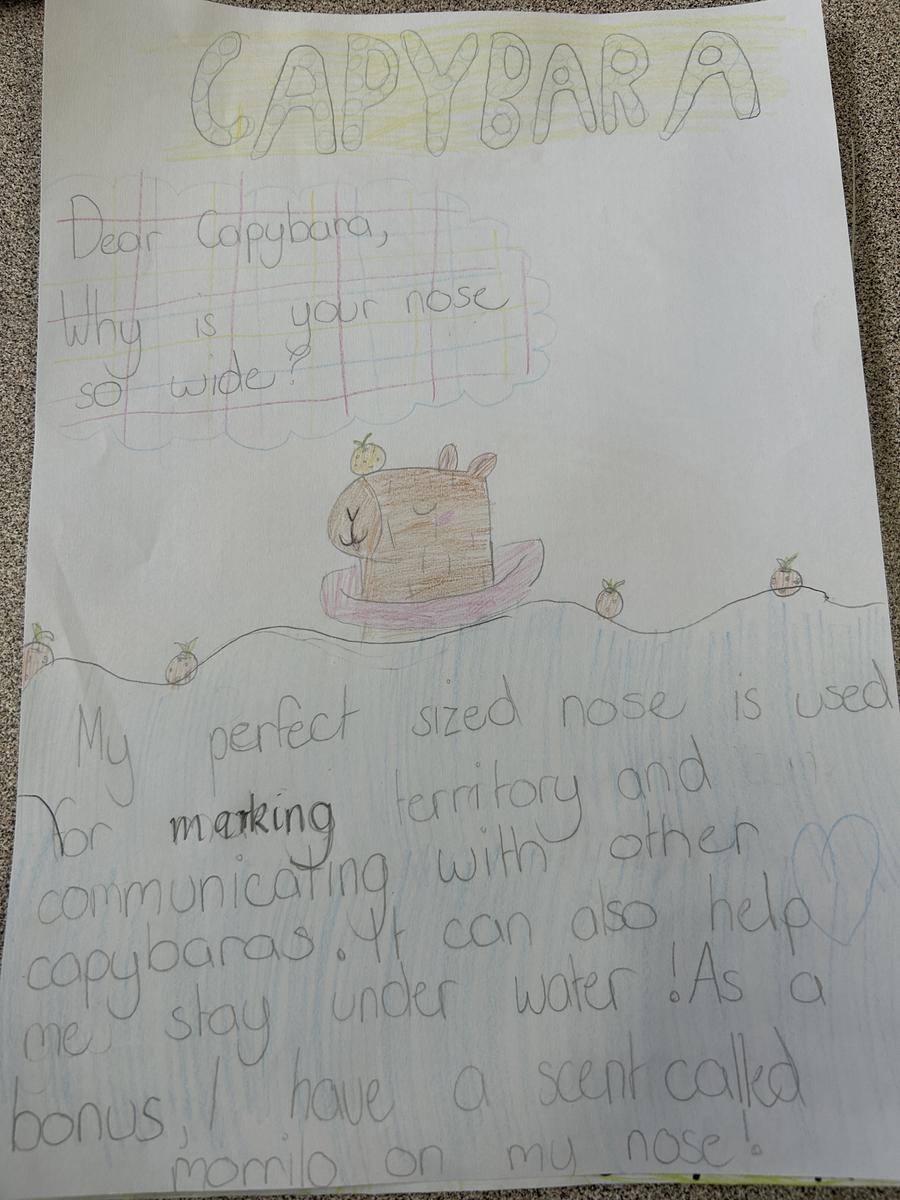 CAPYBARA
Dear Capybara,
Why is your nose
so wide?
My perfect sized nose is used
for marking territory and
communicating with other
capybaras. It can also help
me stay under water! As a
bonus, I have a scent called
morrilo on my nose!